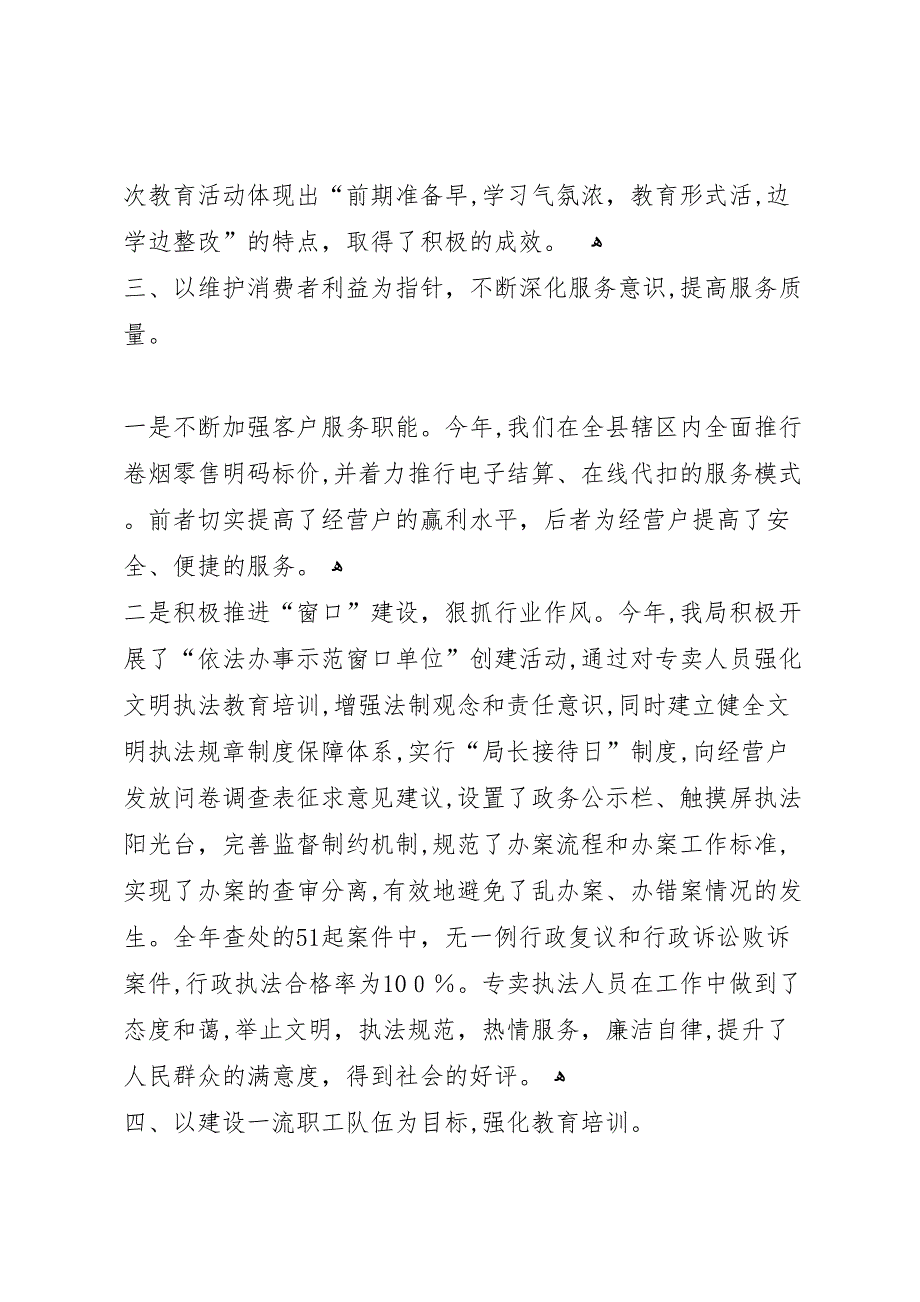 次教育活动体现出“前期准备早,学习气氛浓，教育形式活,边
学边整改”的特点，取得了积极的成效。 ﻫ
三、以维护消费者利益为指针，不断深化服务意识,提高服务质
量。
一是不断加强客户服务职能。今年,我们在全县辖区内全面推行
卷烟零售明码标价,并着力推行电子结算、在线代扣的服务模式
。前者切实提高了经营户的赢利水平，后者为经营户提高了安
全、便捷的服务。 ﻫ
二是积极推进“窗口”建设，狠抓行业作风。今年,我局积极开
展了“依法办事示范窗口单位”创建活动,通过对专卖人员强化
文明执法教育培训,增强法制观念和责任意识,同时建立健全文
明执法规章制度保障体系,实行“局长接待日”制度,向经营户
发放问卷调查表征求意见建议,设置了政务公示栏、触摸屏执法
阳光台，完善监督制约机制,规范了办案流程和办案工作标准,
实现了办案的查审分离,有效地避免了乱办案、办错案情况的发
生。全年查处的51起案件中，无一例行政复议和行政诉讼败诉
案件,行政执法合格率为10０％。专卖执法人员在工作中做到了
态度和蔼,举止文明，执法规范，热情服务，廉洁自律,提升了
人民群众的满意度，得到社会的好评。 ﻫ
四、以建设一流职工队伍为目标,强化教育培训。